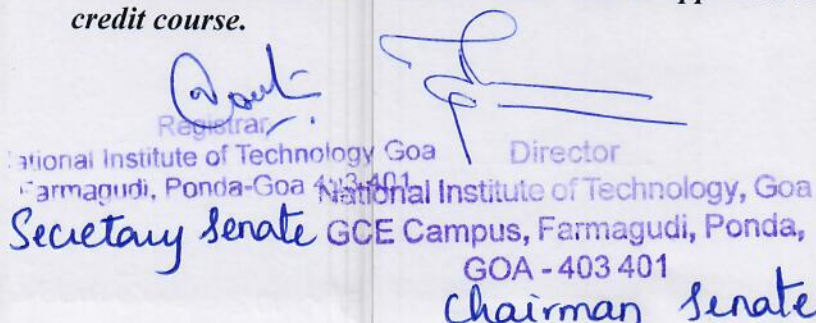 credit course.
Registrar
National Institute of Technology Goa
Farmagudi, Ponda-Goa 403 401
Secretary Senate
Director
National Institute of Technology, Goa
GCE Campus, Farmagudi, Ponda,
GOA - 403 401
Chairman Senate